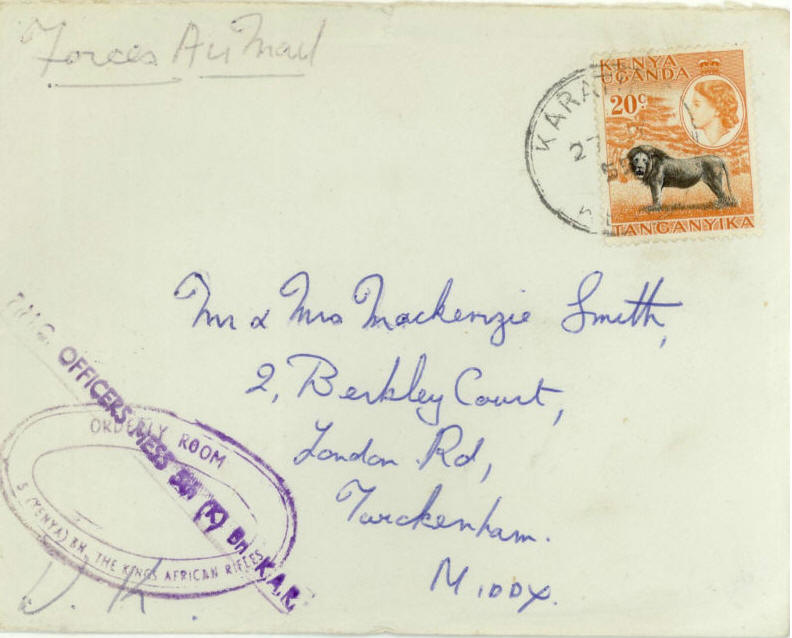 Forces Air Mail
KENYA
UGANDA
20c
TANGANYIKA
27
Mr & Mrs Mackenzie Smith,
2, Berkley Court,
London Rd,
Twickenham.
MIDDX.
OFFICERS MESS (K) Bn K.A.R.
ORDERLY ROOM
5 (KENYA) BN. THE KINGS AFRICAN RIFLES